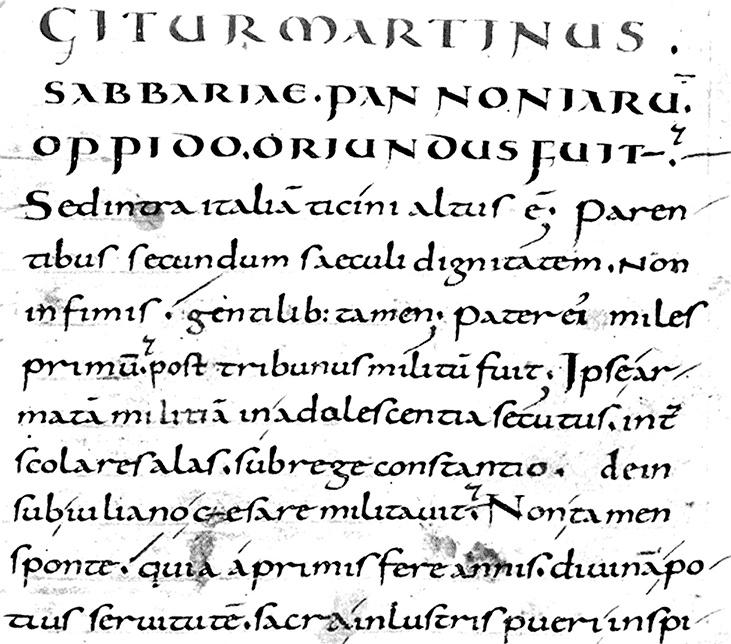 GITUR MARTINUS .
SABBARIAE. PANNONIARŪ.
OPPIDO. ORIUNDUS FUIT.
Sed intra italiā ticini altus ē. Paren
tibus secundum saeculi dignitatem. Non
infimis. gentilib: tamen; Pater ei miles
primū. post tribunus militū fuit; Ipse ar
matā militiā in adolescentia secutus. int̄
scolares alas. sub rege constantio. dein
sub iuliano cesare militavit. Non tamen
sponte. quia a primis fere annis. divinā po
tius servitutē. sacra inlustris pueri inspi